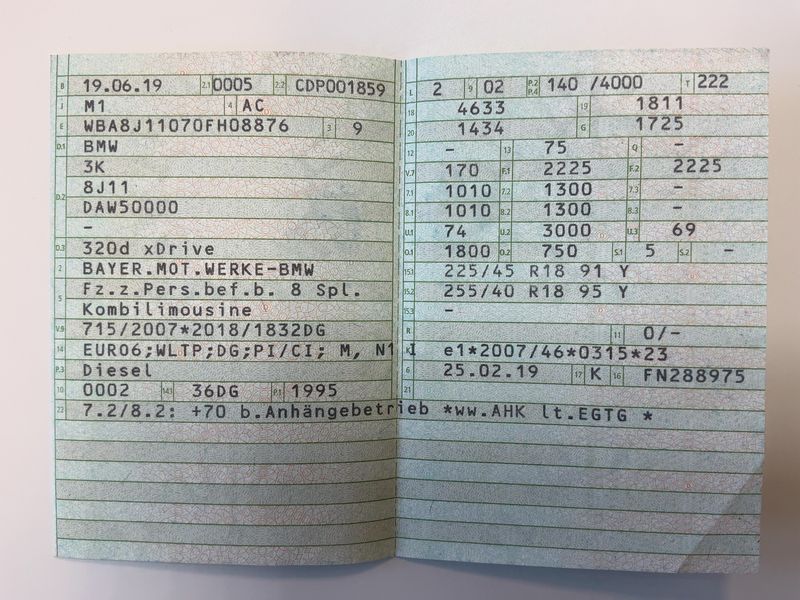 B 19.06.19 2.1 0005 2.2 CDP001859
J M1 4 AC
E WBA8J11070FH08876 3 9
D.1 BMW
3K
D.2 8J11
DAW50000
-
D.3 320d xDrive
2 BAYER.MOT.WERKE-BMW
5 Fz.z.Pers.bef.b. 8 Spl.
Kombilimousine
V.9 715/2007*2018/1832DG
14 EURO6;WLTP;DG;PI/CI; M, N1 I
P.3 Diesel
10 0002 14.1 36DG P.1 1995
22 7.2/8.2: +70 b.Anhängebetrieb *ww.AHK lt.EGTG *
L 2 9 02 P.2 P.4 140 /4000 T 222
18 4633 19 1811
20 1434 G 1725
12 - 13 75 Q -
V.7 170 F.1 2225 F.2 2225
7.1 1010 7.2 1300 7.3 -
8.1 1010 8.2 1300 8.3 -
U.1 74 U.2 3000 U.3 69
O.1 1800 O.2 750 S.1 5 S.2 -
15.1 225/45 R18 91 Y
15.2 255/40 R18 95 Y
15.3 -
R 11 0/-
K e1*2007/46*0315*23
6 25.02.19 17 K 16 FN288975
21